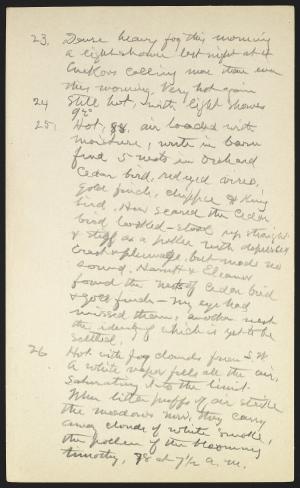 23. Dense heavy fog this morning
a light shower last night at 6
Cuckoos calling more than ever
this morning. Very hot again
24 Still hot, with light showers
92°
25. Hot, 88. air loaded with
moisture, write in barn
find 5 nests in orchard
Cedar bird, red eyed vireo,
gold finch, chippie & King
bird. How scared the Cedar
bird looked – stood up straight
& stiff as a poker with depressed
crest & plumage, but made no
sound. Harriet & Eleanor
found the nests of Cedar bird
& gold finch – my eye had
missed them; another nest
the identity of which is yet to be
settled.
26 Hot with fog clouds from S.W.
A white vapor fills all the air,
saturating it to the limit.
When little puffs of air strike
the meadows now, they carry
away clouds of white smoke,
the pollen of the blooming
timothy, 78 at 7½ a.m.